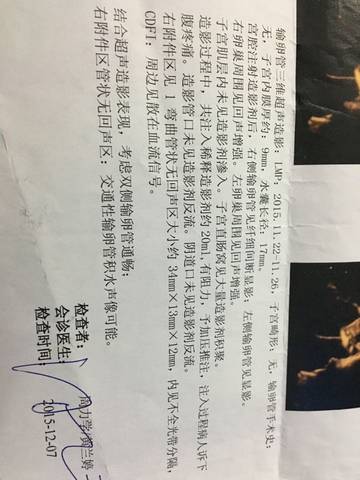 输卵管三维超声造影：LMP：2015. 11. 22-11. 26，子宫畸形：无，输卵管手术史：
无；子宫内膜厚约：9mm，水囊长径：17mm。
宫腔注射造影剂后，右侧输卵管见纤细间断显影；左侧输卵管见显影。
右卵巢周围见回声增强。左卵巢周围见回声增强。
子宫肌层内未见造影剂渗入。子宫直肠窝见大量造影剂积聚。
造影过程中，共注入稀释造影剂约20ml，有阻力，予加压推注；注入过程病人诉下
腹疼痛。造影管口未见造影剂反流。阴道口未见造影剂反流。
右附件区见1弯曲管状无回声区大小约 34mm×13mm×12mm，内见不全光带分隔，
CDFI：周边见散在血流信号。
结合超声造影表现，考虑双侧输卵管通畅；
右附件区管状无回声区：交通性输卵管积水声像可能。
检查者：周力学/贺兰婷
会诊医生：
检查时间：2015-12-07